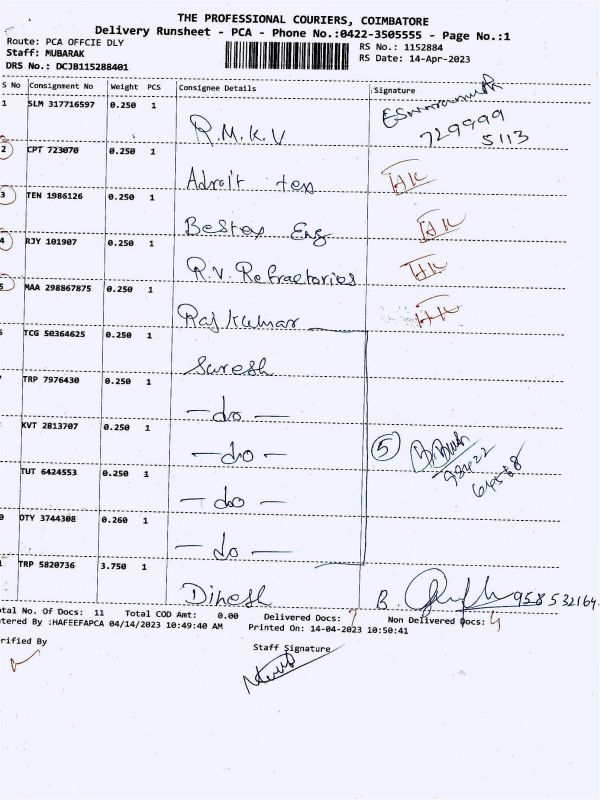 THE PROFESSIONAL COURIERS, COIMBATORE
Delivery Runsheet - PCA - Phone No.:0422-3505555 - Page No.:1
Route: PCA OFFCIE DLY
Staff: MUBARAK
DRS No.: DCJB115288401
RS No.: 1152884
RS Date: 14-Apr-2023
S No Consignment No Weight PCS Consignee Details Signature
1 SLM 317716597 0.250 1 R.M.K.V 729999 5113
2 CPT 723070 0.250 1 Adroit tex
3 TEN 1986126 0.250 1 Bestex Eng
4 RJY 101907 0.250 1 R.V. Refractories
5 MAA 298867875 0.250 1 Raj kumar
TCG 50364625 0.250 1 Suresh
TRP 7976430 0.250 1 - do -
KVT 2813707 0.250 1 - do - 5
TUT 6424553 0.250 1 - do -
OTY 3744308 0.260 1 - do -
TRP 5820736 3.750 1 Dinesh B.
tal No. Of Docs: 11 Total COD Amt: 0.00 Delivered Docs: 7 Non Delivered Docs: 4
tered By :HAFEEFAPCA 04/14/2023 10:49:40 AM Printed On: 14-04-2023 10:50:41
rified By
Staff Signature